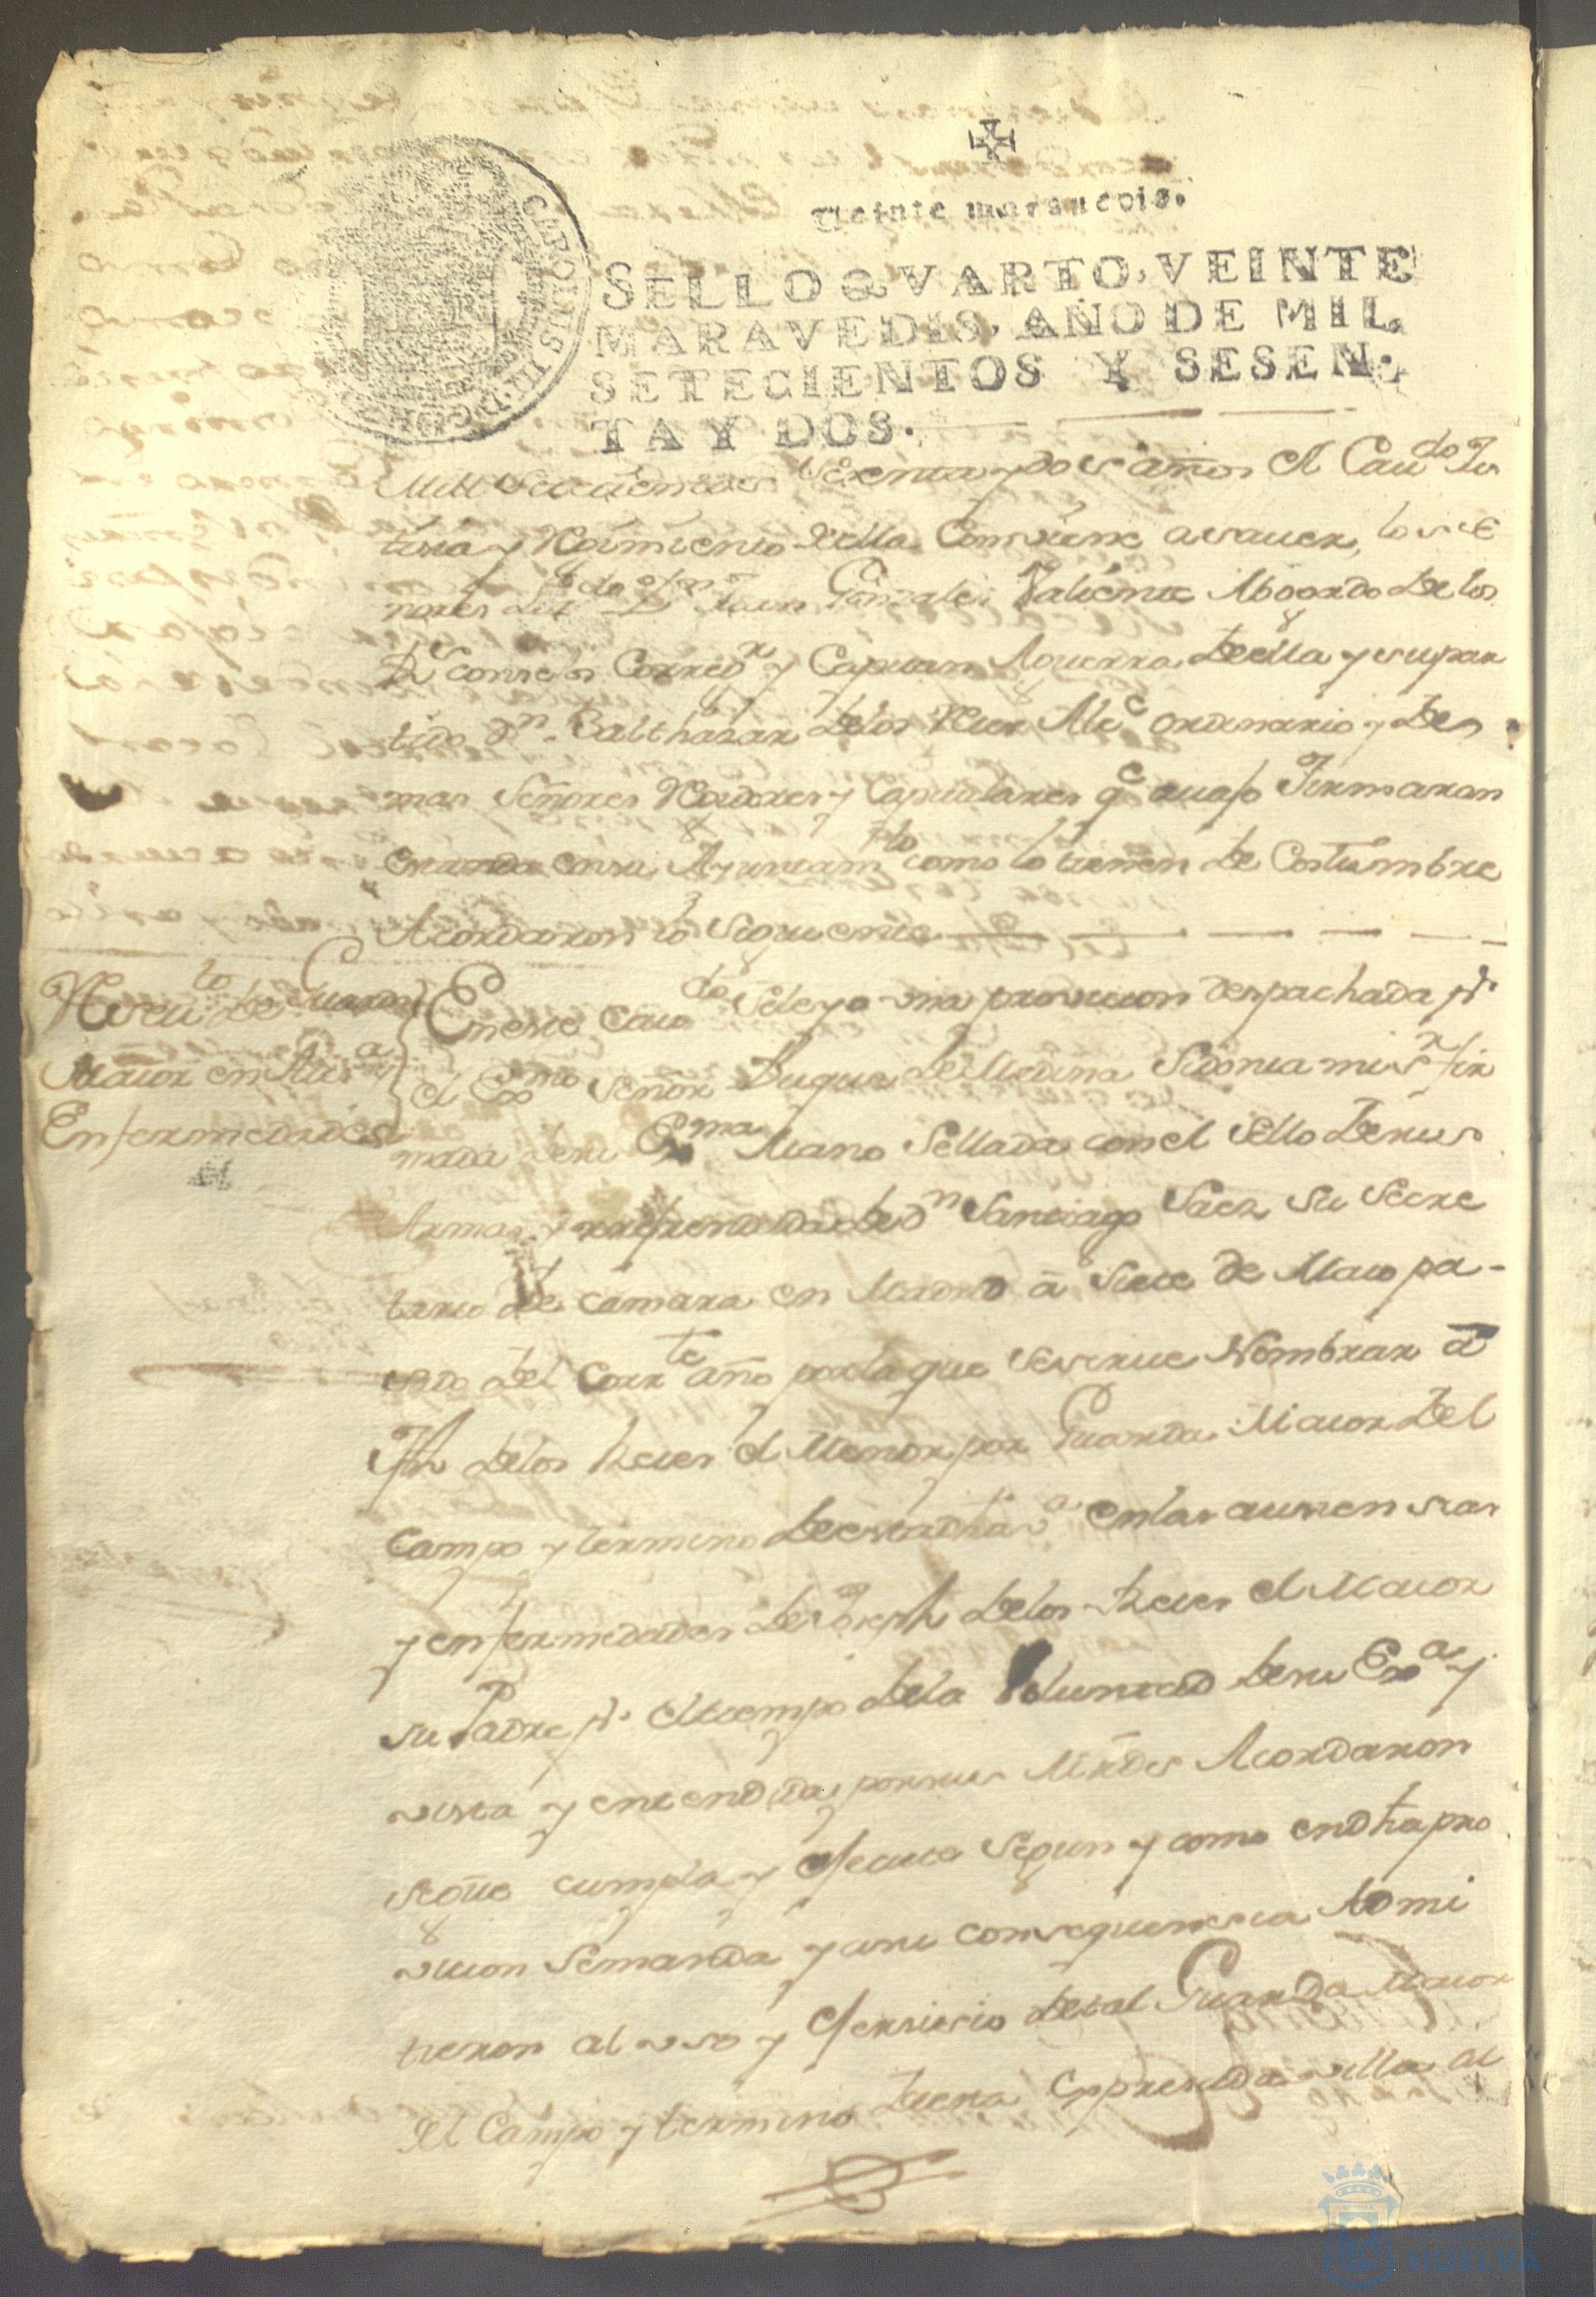 Veinte maravedis.
SELLO QVARTO, VEINTE
MARAVEDIS, AÑO DE MIL
SETECIENTOS Y SESEN-
TA Y DOS.
Mill Setecientos Sesenta y dos años el Caudo Jus
ticia y Reximiento della Combiene asauer, los se
nores Lizdo Dn Juan Gonzales Valiente Abogado de los
Rs consejos Corredr y Capitan Aguerra de ella y supar
tido Dn Balthasar delos Reies Alce ordinario y De
mas Señores Rexidores y Capitulares qe auajo Firmaran
estando ensu Ayuntamto como lo tienen de Costumbre
Acordaron lo Siguiente
Reseuto de Guarda
Maior en Ausas y
Enfermedades
Eneste Caudo Seleyo una provision despachada pr
el Exmo Señor Duque de Medina Sidonia mi Sr fir
mada desu Exma Mano Sellada conel sello desus
Armas y refrendada de Dn Santiago Saez su Secre
tario de camara en Madrid á Siete de Maio pa-
sado del Corrte año porla que Sesirue Nombrar á
Jph delos Reies el Menor por Guarda Maior del
campo y termino deesta dha va enlas ausensias
y enfermedades de Joseph delos Reies el Maior
su Padre pr eltiempo dela Voluntad desu Exa y
vista y entendida porsus Mrdes Acordaron
segue cumpla y ejecute Segun y como endha pro
vision Semanda y ensu consequensia Admi
tieron al uso y ejersisio detal Guarda Maior
del Campo y termino desta Expresada villa al
HUELVA